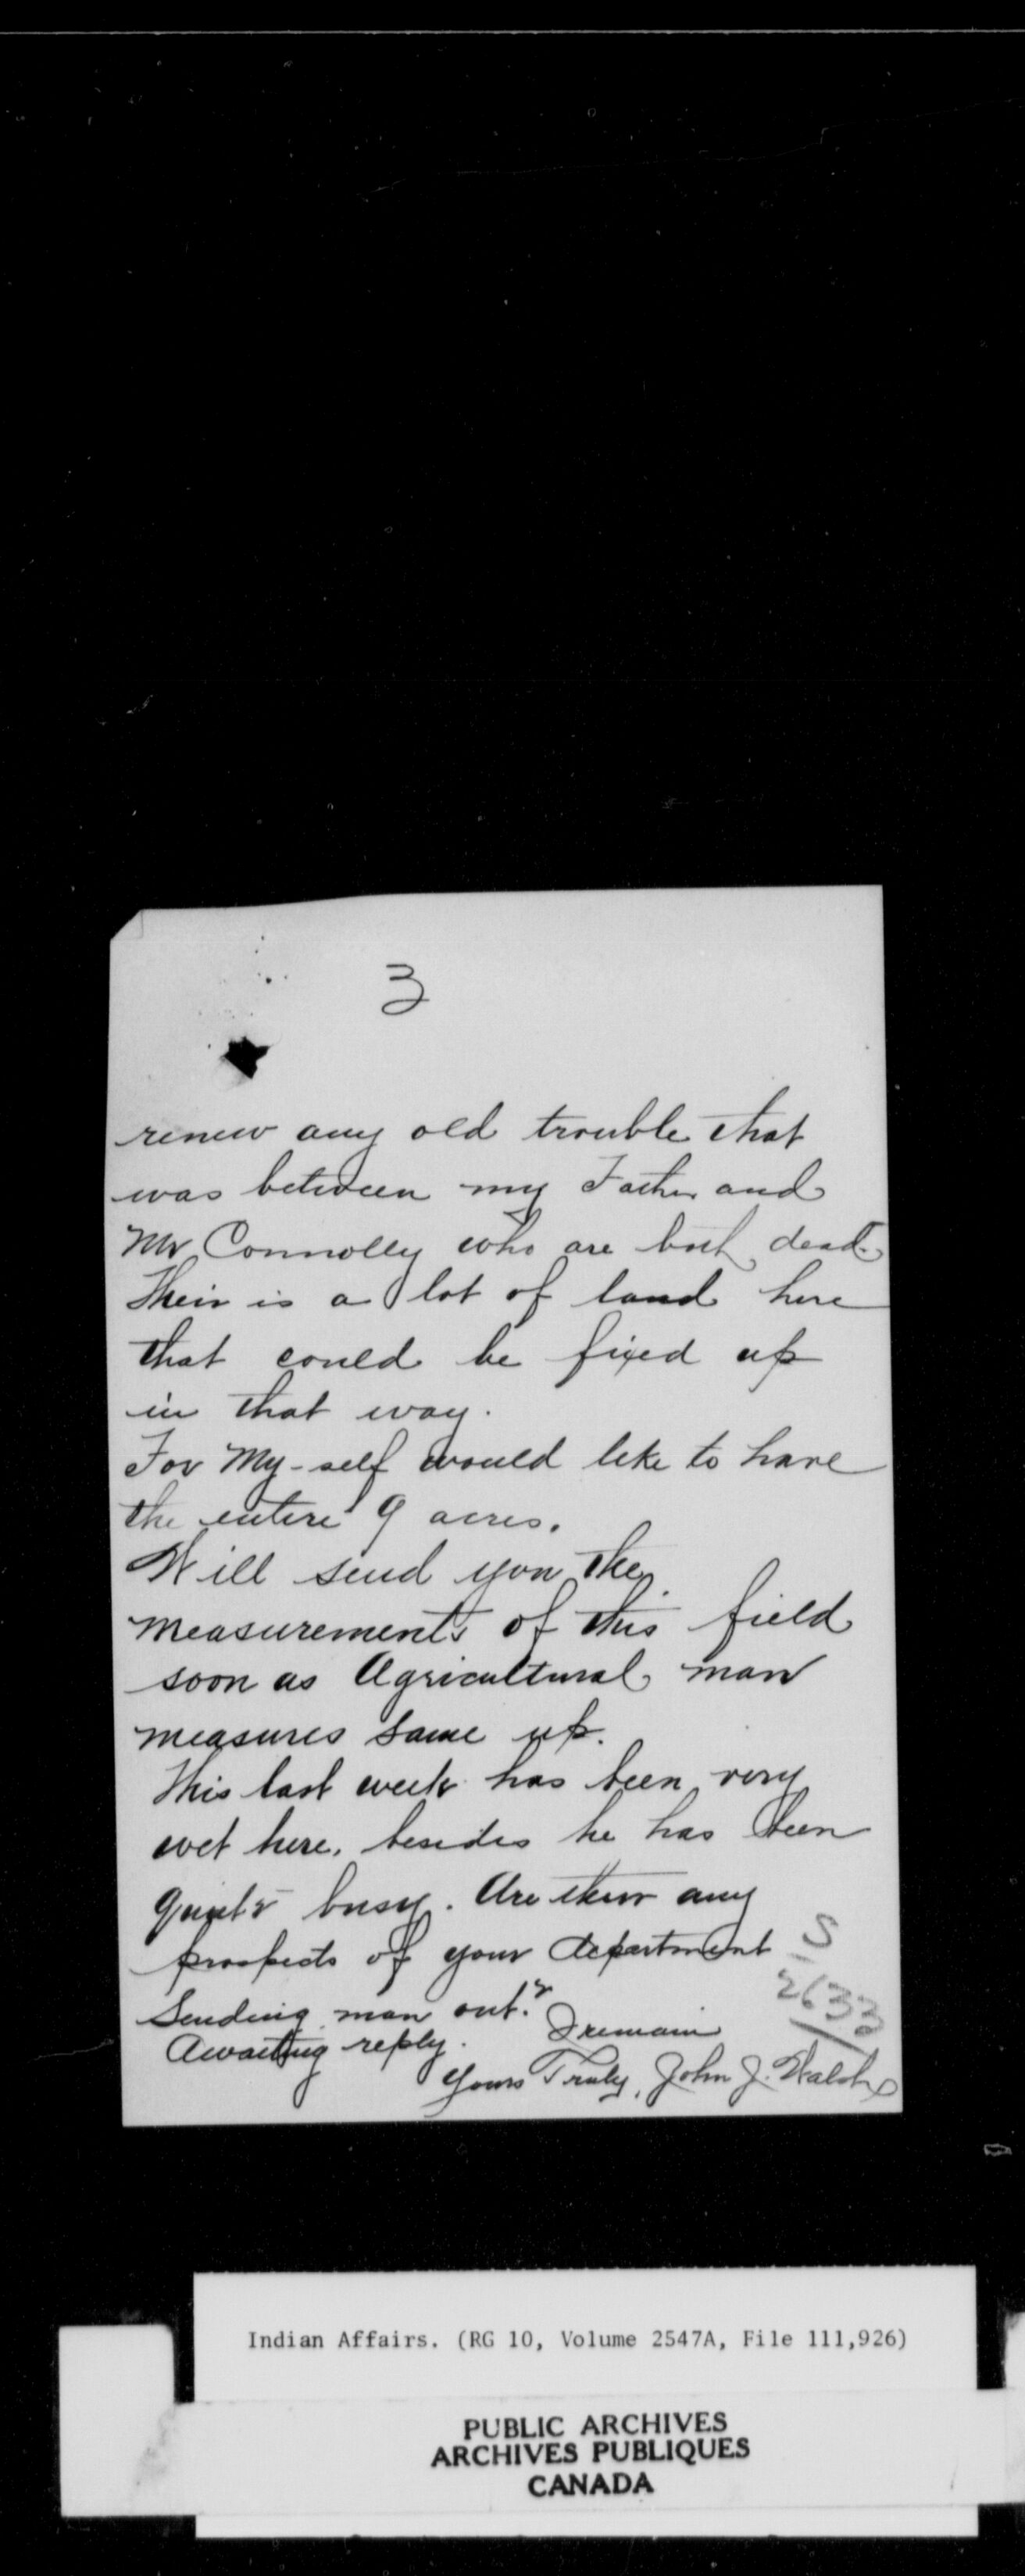 3
renew any old trouble that
was between my Father and
Mr Connolly who are both dead.
Their is a lot of land here
that could be fixed up
in that way.
For My-self would like to have
the entire 9 acres.
Will send you the
measurements of this field
soon as Agricultural man
measures same up.
This last week has been very
wet here, besides he has been
busy. Are their any
prospects of your department
Sending man out.?
Awaiting reply. I remain
Yours Truly, John J. Walsh
S
2633
Indian Affairs. (RG 10, Volume 2547A, File 111,926)
PUBLIC ARCHIVES
ARCHIVES PUBLIQUES
CANADA